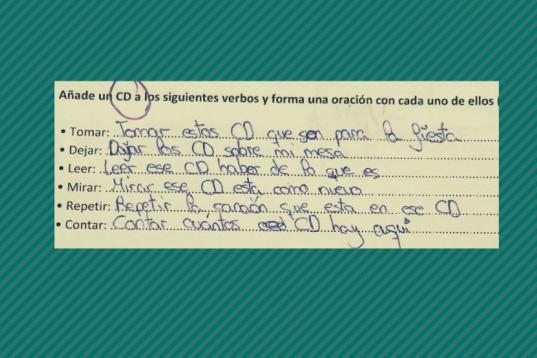 Añade un CD a los siguientes verbos y forma una oración con cada uno de ellos
• Tomar: Tomar estos CD que son para la fiesta
• Dejar: Dejar los CD sobre mi mesa
• Leer: Leer ese CD haber de lo que es
• Mirar: Mirar ese CD esta como nuevo
• Repetir: Repetir la canción que esta en ese CD
• Contar: Contar cuantos CD hay aquí